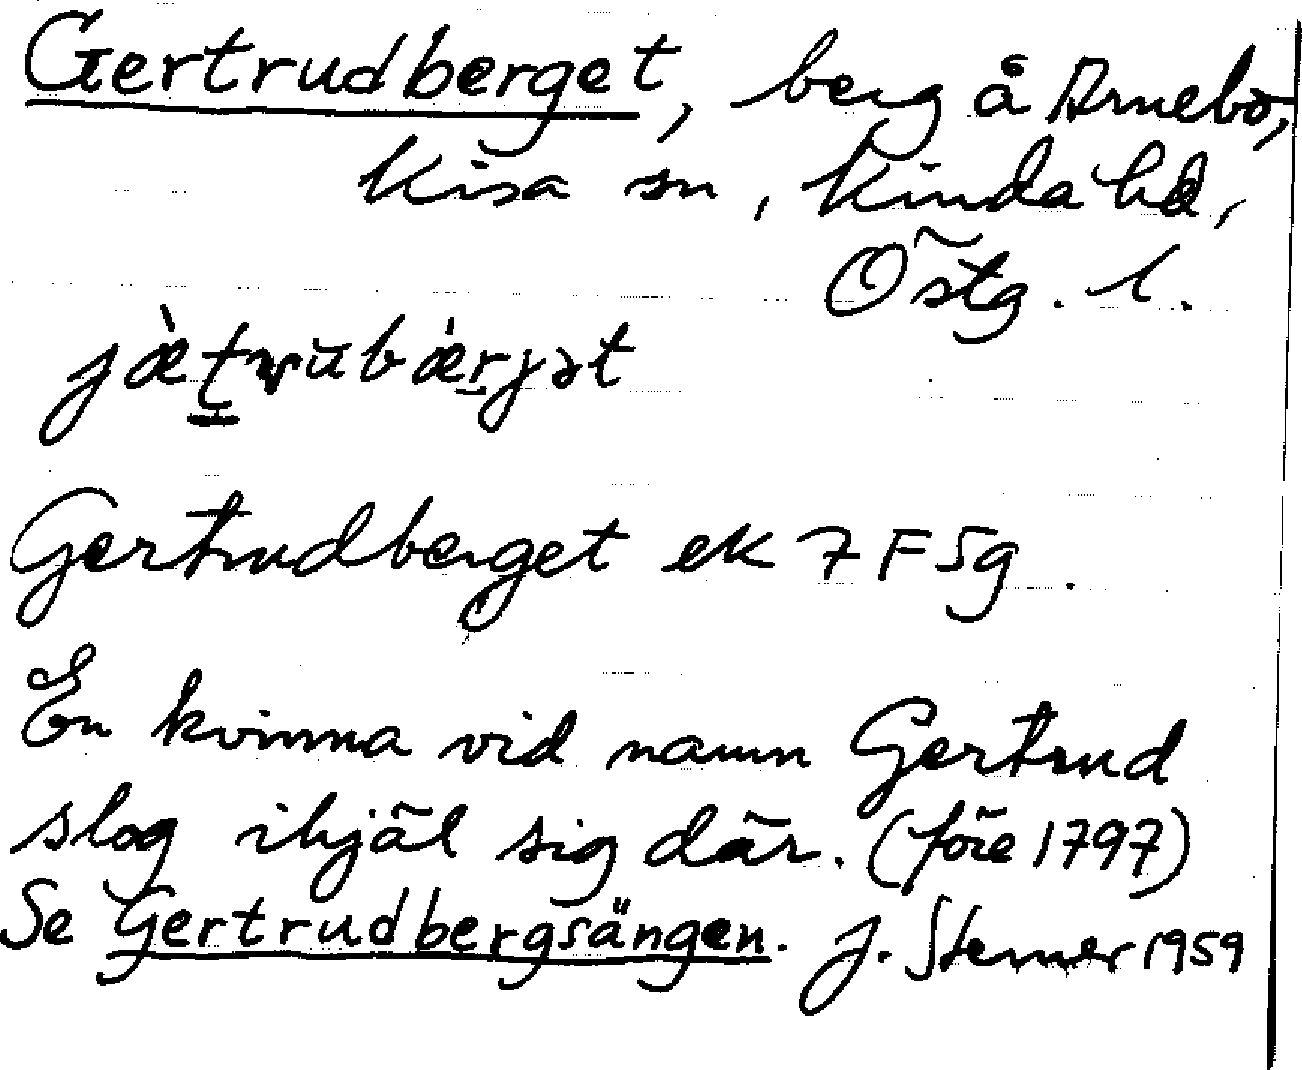 Gertrudberget, berg å Arnebo,
Kisa sn, Kinda hd,
Östg. l.
jæ̀tru̇bæ̀rjət
Gertrudberget ek 7F5g.
En kvinna vid namn Gertrud
slog ihjäl sig där. (före 1797)
Se Gertrudbergsängen. J. Sterner 1959